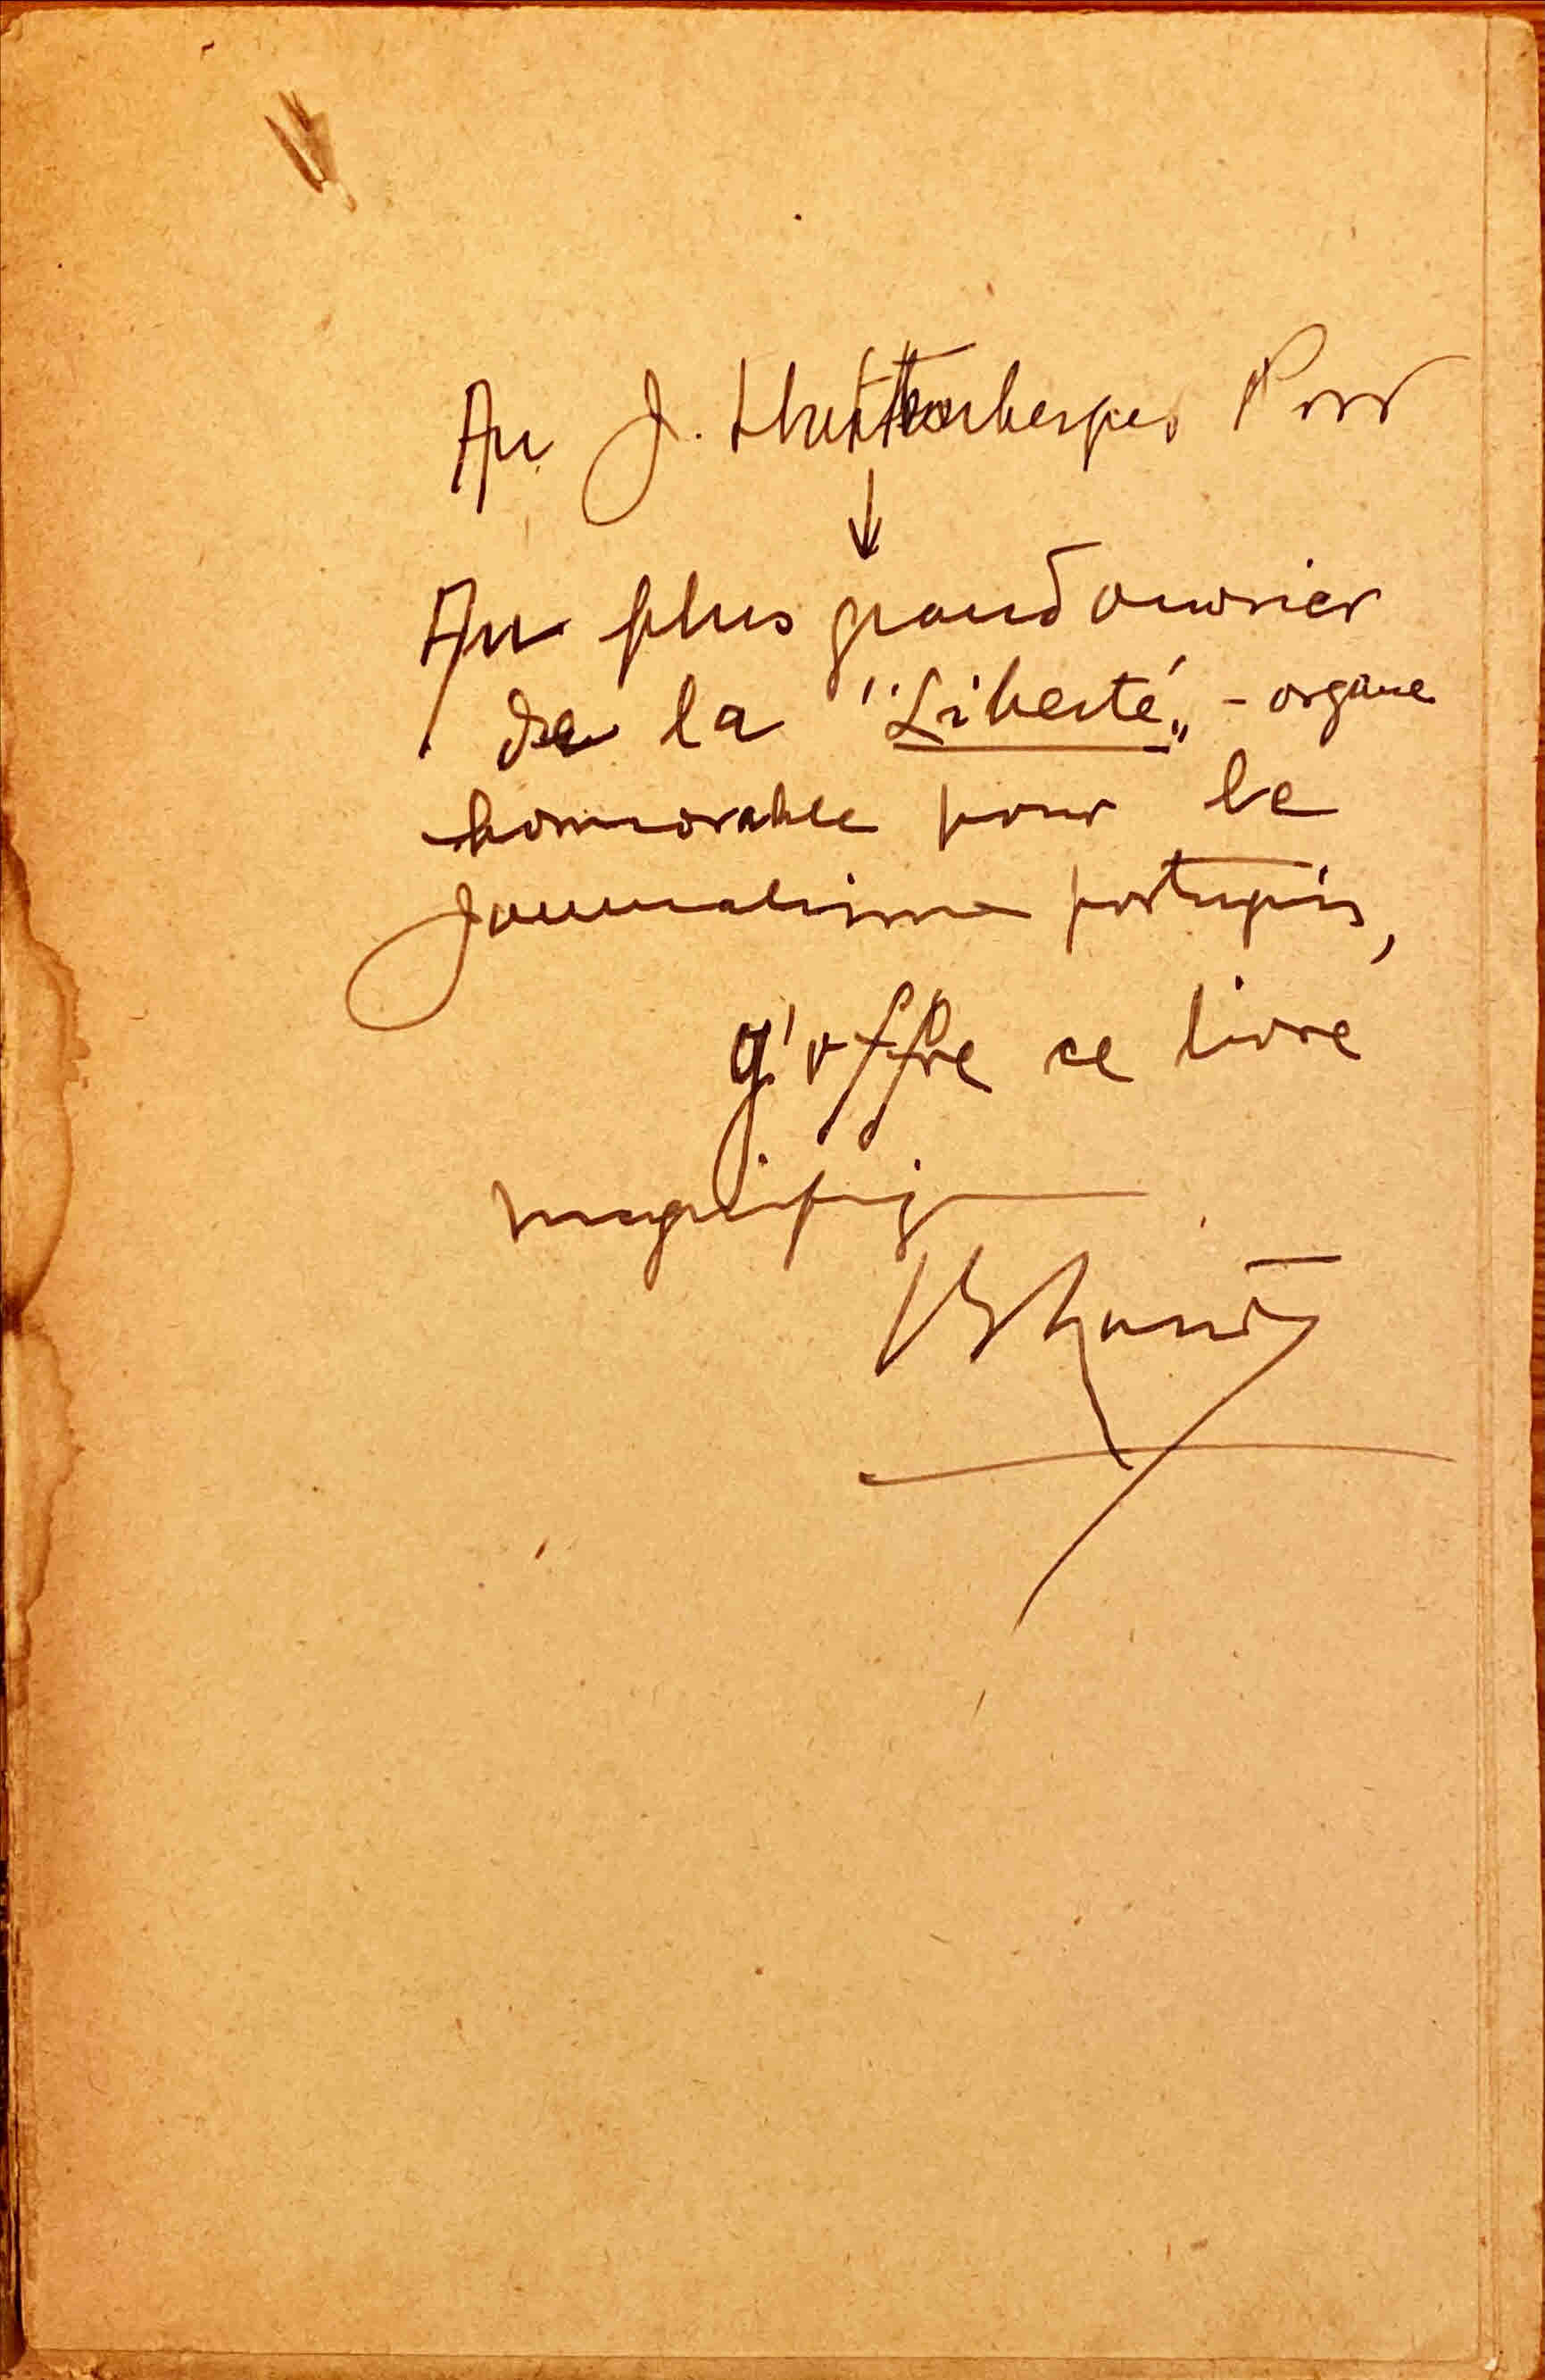 Au J.
Au plus grand ouvrier
de la "Liberté„ - organe
honnorable pour le
Journalisme portugais,
J'offre ce livre
magnifique